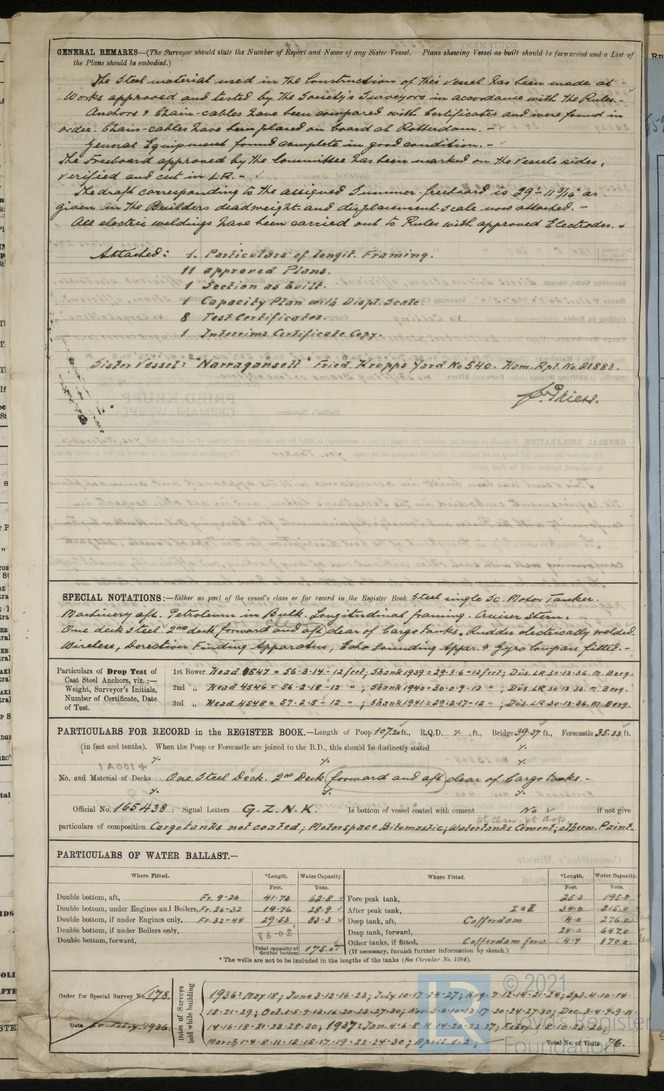 GENERAL REMARKS—(The Surveyor should state the Number of Report and Name of any Sister Vessel. Plans showing Vessel as built should be forwarded and a List of
the Plans should be embodied.)
The Steel material used in the Construction of this Vessel has been made at
Works approved and tested by the Society's Surveyors in accordance with the Rules.-
Anchors & Chain-cables have been compared with Certificates and were found in
order. Chain-cables have been placed on board at Rotterdam. -
General Equipment found complete in good condition. -
The Freeboard approved by the Committee has been marked on the Vessels sides,
verified and cut in LR. -
The draft corresponding to the assigned Summer freeboard is 29'- 11 3/16" as
given in the Builders deadweight and displacement scale now attached. -
All electric weldings have been carried out to Rules with approved Electrodes.
Attached: 1 Particulars of longit. Framing.
11 approved Plans.
1 Section as built.
1 Capacity Plan with Displ. Scale
8 Test Certificates.
1 Interims Certificate Copy.
Sister Vessel: "Narragansett" Fried. Krupps Yard No 540. Ham. Rpt. No. 21883.
SPECIAL NOTATIONS:—Either as part of the vessel's class or for record in the Register Book. Steel single Sc. Motor Tanker.
Machinery aft. Petroleum in Bulk. Longitudinal framing. Cruiser Stern.
One deck Steel 2nd deck forward and aft clear of Cargo tanks, Rudder electrically welded.
Wireless, Direction Finding Apparatus, Echo Sounding Appar. & Gyro Compass fitted.-
Particulars of Drop Test of
Cast Steel Anchors, viz.:—
Weight, Surveyor's Initials,
Number of Certificate, Date
of Test.
1st Bower Head 4547 = 56-3-14-12 feet; Shank 1939 = 29-3-6-12 feet; Dis. LR 30.12.36. M. Berg.
2nd " Head 4546 = 56-2-18-12 " ; Shank 1940 = 30-0-9-12 " ; Dis. LR 30.12.36. M. Berg.
3rd " Head 4548 = 57-2-5-12 " ; Shank 1941 = 29-2-17-12 " ; Dis. LR 30.12.36. M. Berg.
PARTICULARS FOR RECORD in the REGISTER BOOK.—Length of Poop ft., R.Q.D. ft., Bridge 39.37 ft., Forecastle ft.
(in feet and tenths). When the Poop or Forecastle are joined to the B.D., this should be distinctly stated
No. and Material of Decks One Steel Deck. 2nd Deck forward and aft clear of Cargo tanks -
Official No. 165438 ; Signal Letters G.Z.N.K. Is bottom of vessel coated with cement No if not give
particulars of composition Cargo tanks not coated; Motorspace Bitumastic; Watertanks Cement; otherw. Paint.
PARTICULARS OF WATER BALLAST.—
Where Fitted. *Length. Water Capacity. Where Fitted. *Length. Water Capacity.
Feet. Tons. Feet. Tons.
Double bottom, aft, Fr. 9-26 41.73 62.8 Fore peak tank, 25.3 195.0
Double bottom, under Engines and Boilers, Fr. 26-32 14.76 28.9 After peak tank, 34.0 215.0
Double bottom, if under Engines only, Fr. 32-44 29.53 83.3 Deep tank, aft, Cofferdam 4.0 276.0
Double bottom, if under Boilers only, 86.02 Deep tank, forward, 24.0 647.0
Double bottom, forward, Other tanks, if fitted, Cofferdam forw. 4.7 170.0
Total capacity of double bottom 175.0 (If necessary, furnish further information by sketch.)
* The wells are not to be included in the lengths of the tanks (See Circular No. 1284).
Order for Special Survey No. 178.
Date 20 Febry 1936
Dates of Surveys held while building
1936: May 18; June 3-12-16-23; July 10-17-24-27; Aug. 7-12-14-21-24; Spt. 4-10-14-
18-21-29; Oct. 1-5-9-13-16-20-23-27-30; Nov. 3-6-10-13-17-20-24-27-30; Dec. 2-4-9-11-
14-16-18-21-23-28-30; 1937:
Total No. of Visits 76.
© 2021
Lloyd's Register
Foundation